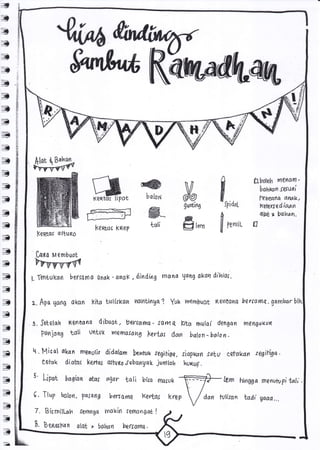 Hias dinding
Sambut Ramadhan
RAMADHAN!
Alat & Bahan
kertas lipat
balon
gunting
spidol
boleh menam-
bahkan sesuai
rencana anak,
ketersediaan
alat & bahan.
kertas krep
tali
lem
pensil
kertas asturo
Cara Membuat
1. Tentukan bersama anak-anak, dinding mana yang akan dihias.
2. Apa yang akan kita tuliskan nantinya? Yuk membuat rencana bersama, gambar blh
3. Setelah rencana dibuat, bersama-sama kita mulai dengan mengukur
panjang tali untuk memasang kertas dan balon-balon.
4. Micail akan menulis didalam bentuk segitiga, siapkan satu cetakan segitiga.
Cetak diatas kertas asturo/sebanyak jumlah huruf.
5. Lipat bagian atas agar tali bisa masuk lem hingga menutupi tali.
6. Tiup balon, pasang bersama kertas krep dan tulisan tadi yaaa...
7. Bismillah semoga makin semangat!
8. Bereskan alat & bahan bersama.
19